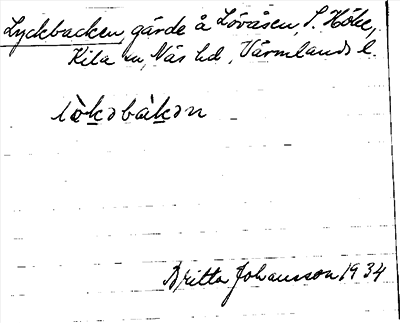 Lyckbacken, gärde å Lövåsen, S. Höke,
Kila sn, Näs hd, Värmlands l.
lòkəbàkən
Britta Johansson 1934